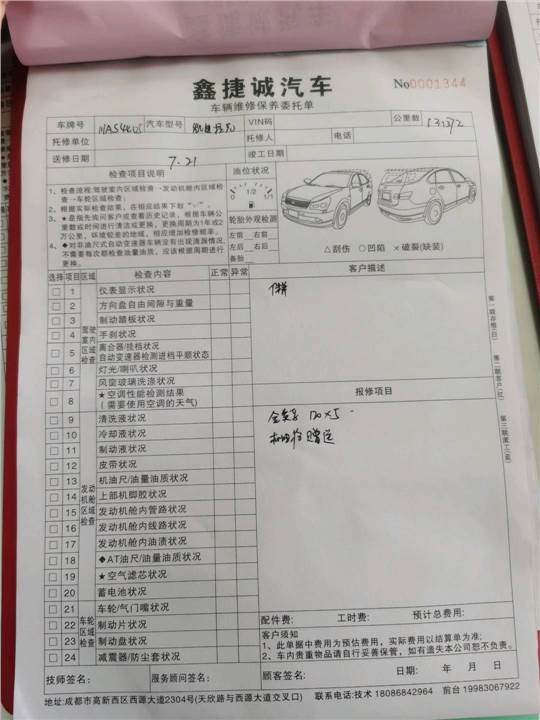 鑫捷诚汽车
车辆维修保养委托单
No0001344
车牌号 汽车型号 VIN码 公里数
托修单位 托修人 电话
送修日期 7.21 竣工日期
检查项目说明 油位状况
1、检查流程:驾驶室内区域检查→发动机舱内区域检查→车轮区域检查。
2、根据实际检查结果,在相应结果下敲"✓"。
3、★是指先询问客户或查看历史记录,根据车辆公里数或时间进行清洁或更换,更换周期为1年或2万公里,环境较差的地域,相应增加检修频率。
4、◆对非油尺式自动变速器车辆没有出现滴漏情况,不需要每次都检查油量油质,应该根据周期进行更换。
0 1/2 1/1
轮胎外观检测
左前 右前
左后 右后
备胎
△刮伤 ○凹陷 ×破裂(缺装)
选择 项目 区域 检查内容 正常 异常 客户描述
驾驶室内区域检查
1 仪表显示状况
2 方向盘自由间隙与重量
3 制动踏板状况
4 手刹状况
5 离合器/挂档状况
自动变速器检测进档平顺状态
6 灯光/喇叭状况
7 风窗玻璃洗涤状况
8 ★空调性能检测结果
(需要使用空调的天气)
报修项目
发动机舱区域检查
9 清洗液状况
10 冷却液状况
11 制动液状况
12 皮带状况
13 机油尺/油量油质状况
14 上部机脚胶状况
15 发动机舱内管路状况
16 发动机舱内线路状况
17 发动机舱内油渍状况
18 ◆AT油尺/油量油质状况
19 ★空气滤芯状况
20 蓄电池状况
车轮区域检查
21 车轮/气门嘴状况
22 制动片状况
23 制动盘状况
24 减震器/防尘套状况
保养
170×5
赠送
配件费: 工时费: 预计总费用:
客户须知
1、此单据中费用为预估费用,实际费用以结算单为准;
2、车内贵重物品请自行妥善保管,如有遗失本公司恕不负责。
技师签名: 服务顾问签名: 客户签名: 日期: 年 月 日
地址:成都市高新西区西源大道2304号(天欣路与西源大道交叉口) 联系电话:技术 18086842964 前台 19983067922
第一联存根(白)
第二联客户(红)